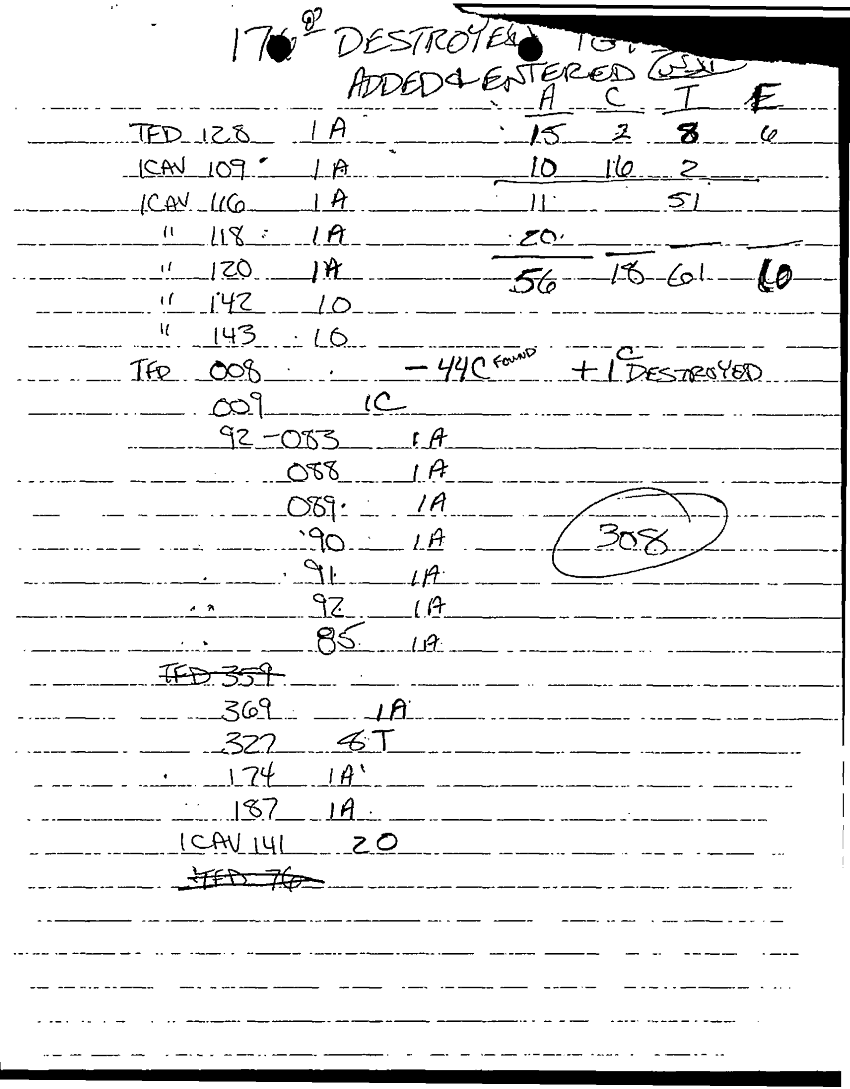 DESTROYED
ADDED & ENTERED
A C T E
TFD 128 1A 15 2 8 6
1CAV 109 1A 10 16 2
1CAV 116 1A 11 51
" 118 1A 20
" 120 1A 56 18 61
" 142 10
" 143 10
TFD 008 - 44C FOUND + 1C DESTROYED
009 1C
92-083 1A
088 1A
089 1A
90 1A 308
91 1A
92 1A
85 1A
TFD 359
369 1A
327 8T
174 1A
187 1A
1CAV 141 20
TFD 76